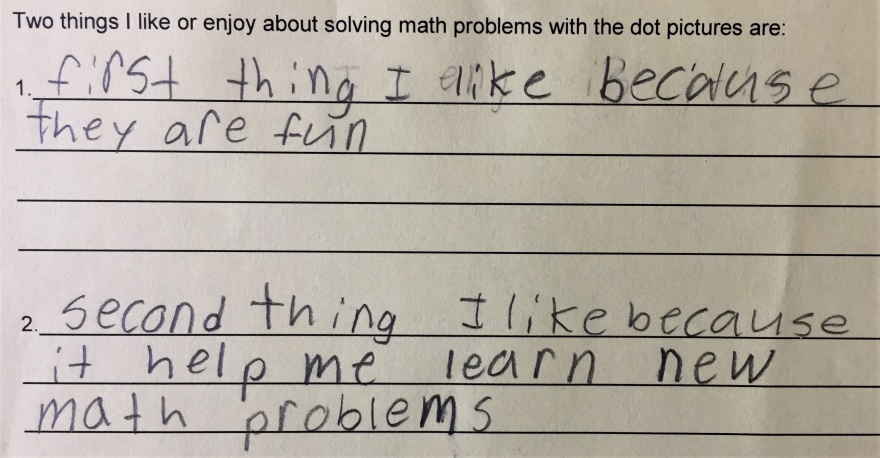 Two things I like or enjoy about solving math problems with the dot pictures are:
1. first thing I like because
they are fun
2. second thing I like because
it help me learn new
math problems